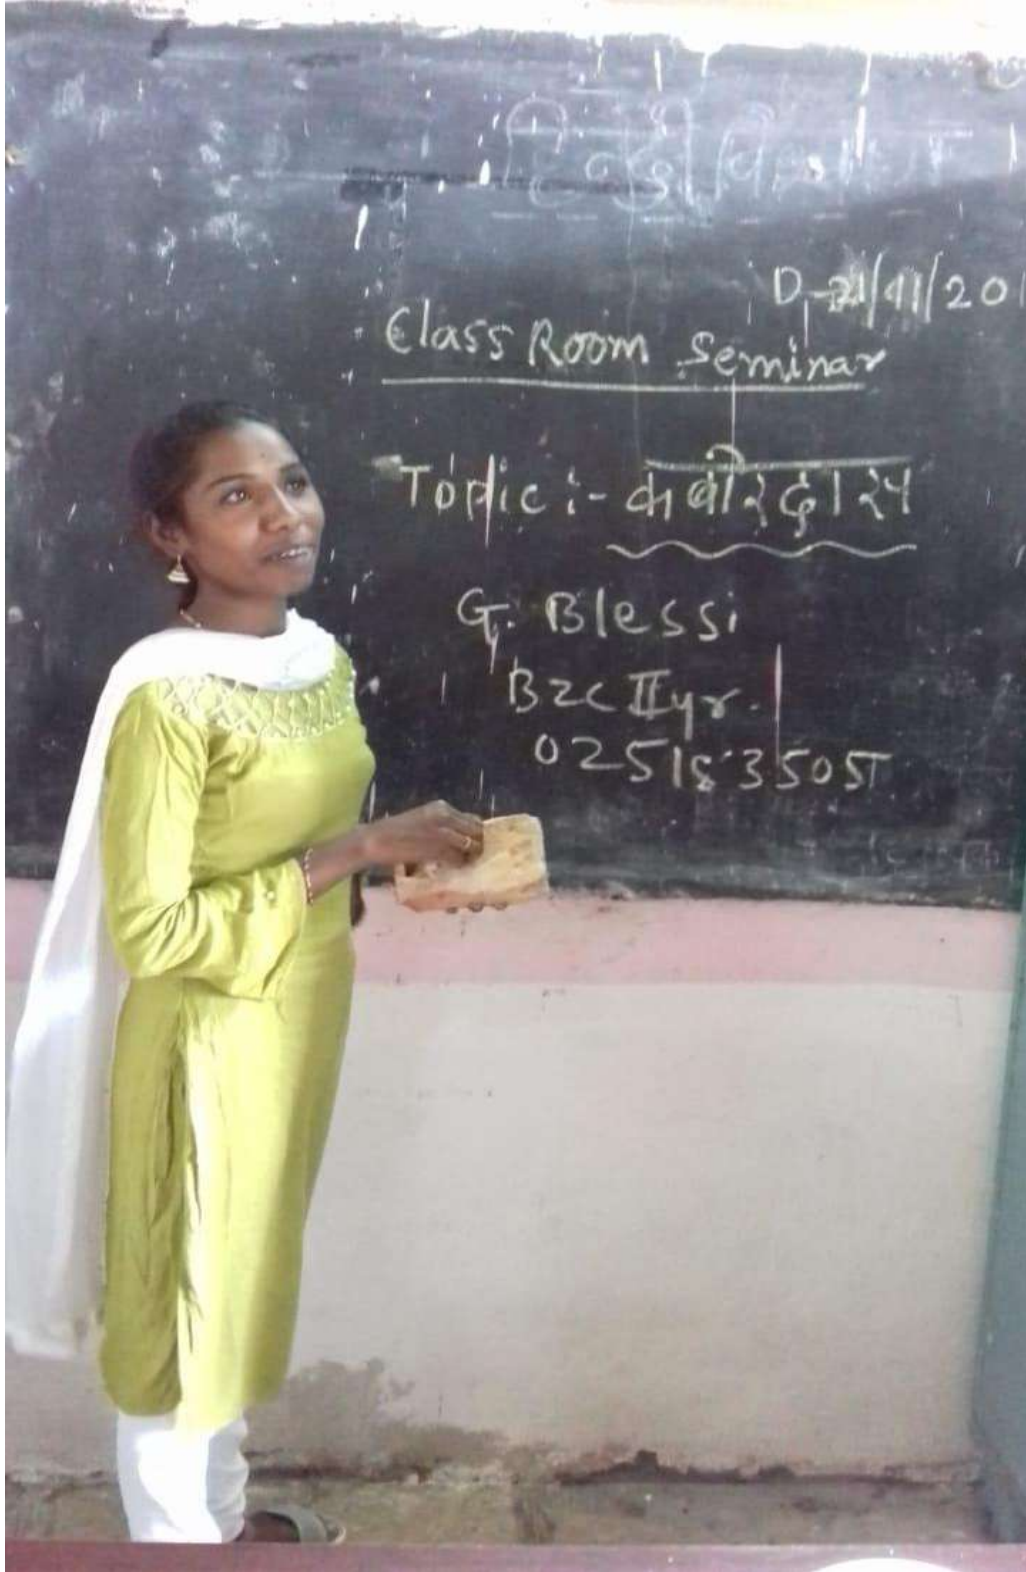 हिन्दी विभाग
D-21/11/201
Class Room Seminar
Topic :- कबीरदास
G. Blessi
BZC II yr.
025183505